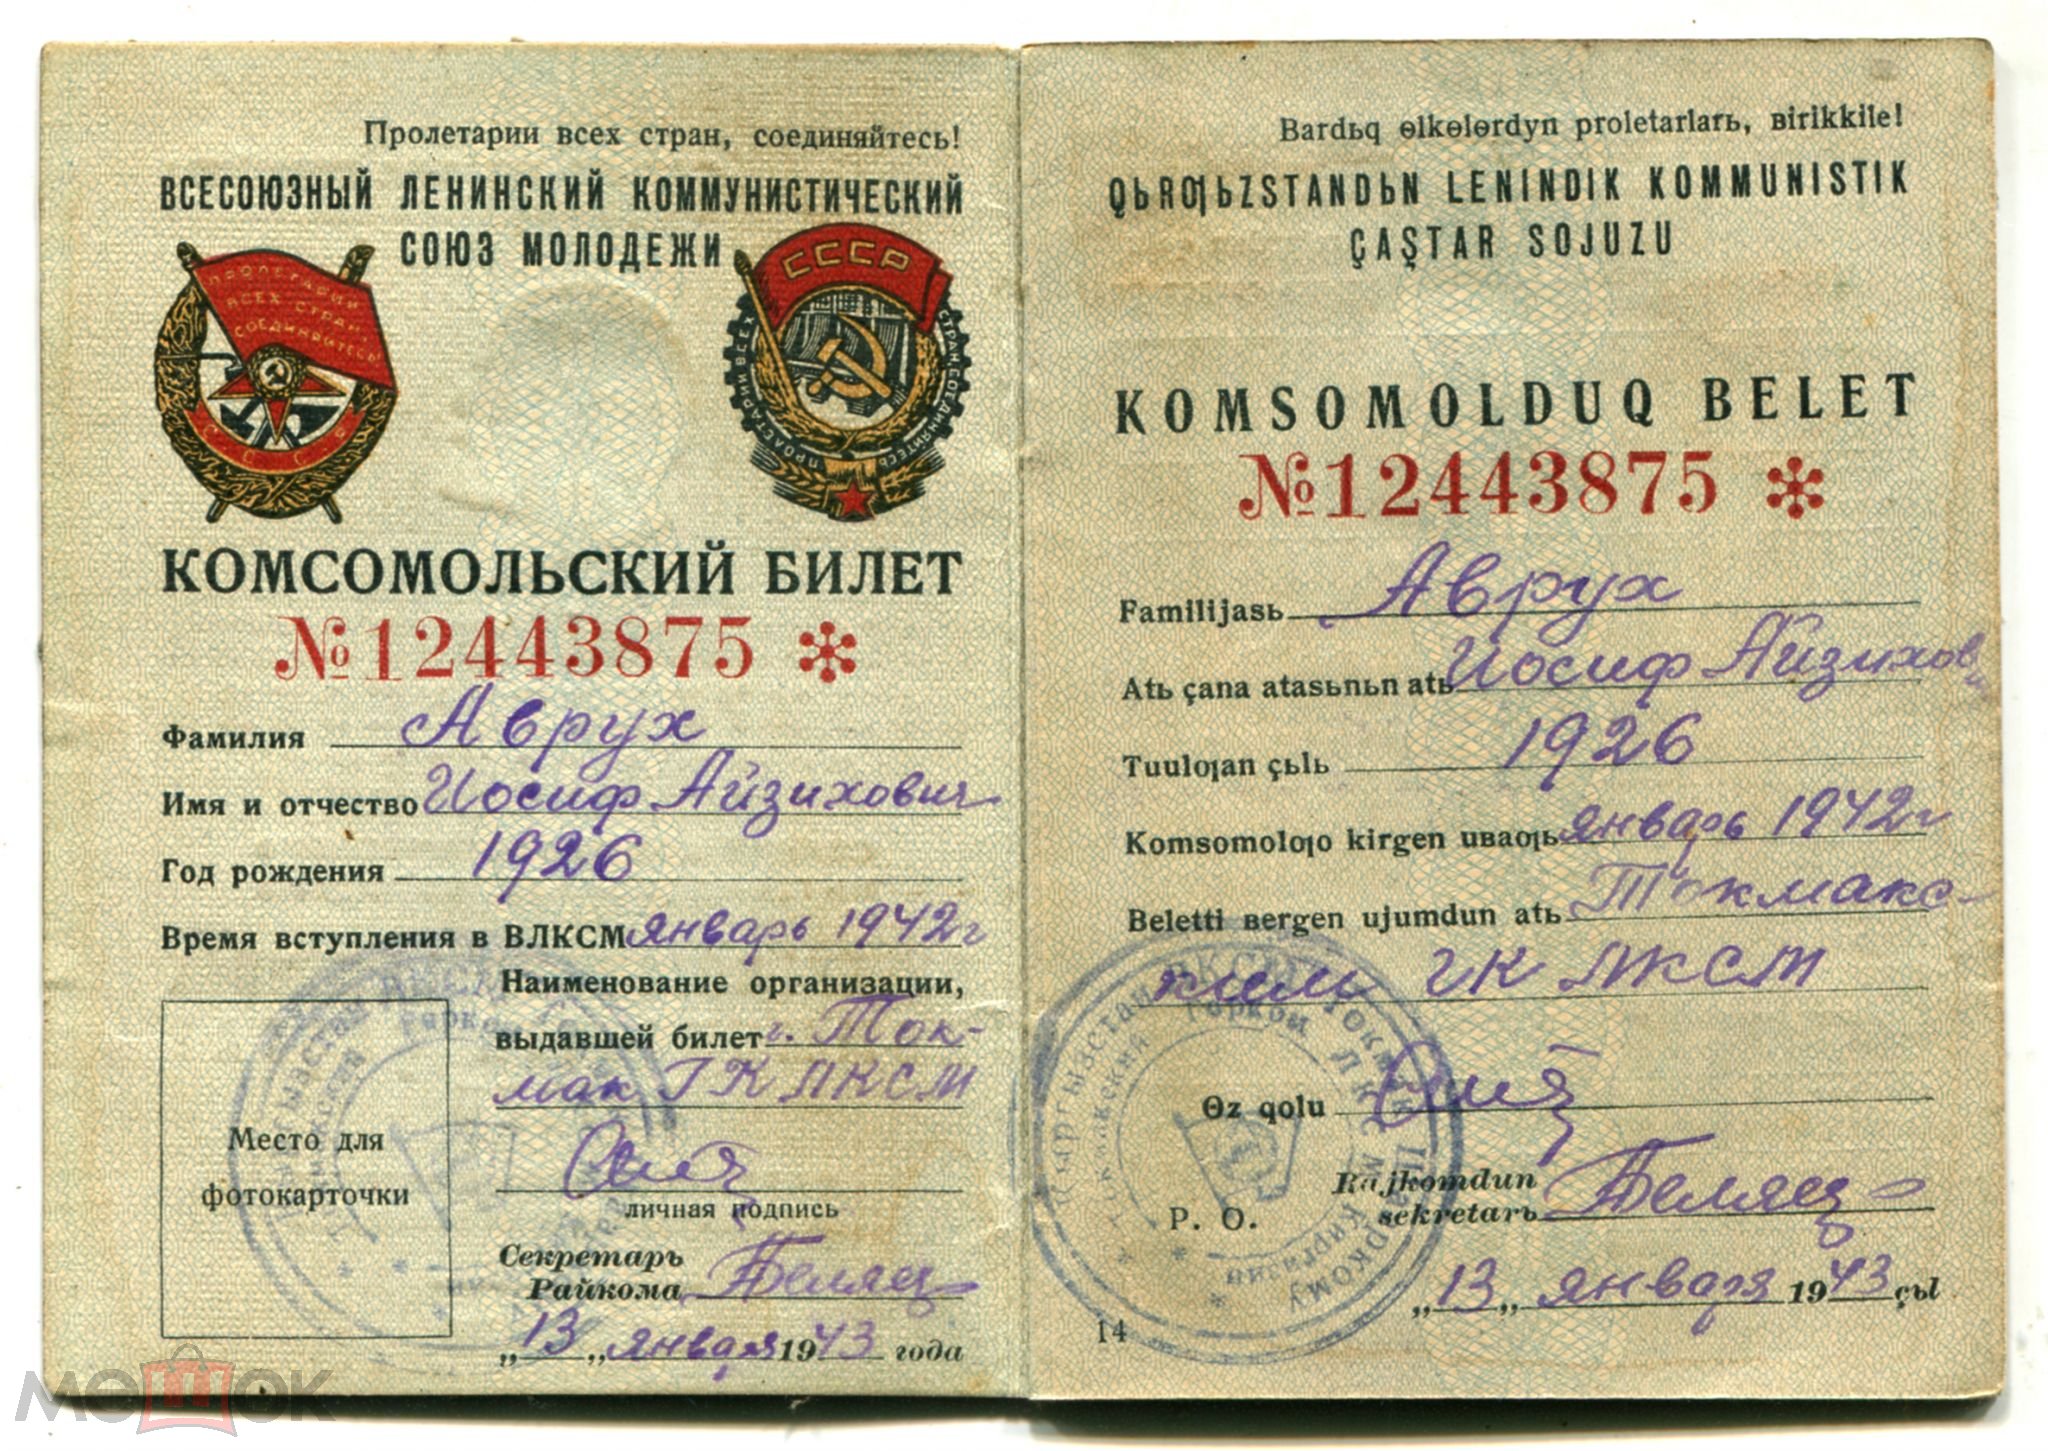 Пролетарии всех стран, соединяйтесь!
ВСЕСОЮЗНЫЙ ЛЕНИНСКИЙ КОММУНИСТИЧЕСКИЙ
СОЮЗ МОЛОДЕЖИ
ПРОЛЕТАРИИ
ВСЕХ СТРАН
СОЕДИНЯЙТЕСЬ
СССР
СССР
КОМСОМОЛЬСКИЙ БИЛЕТ
№12443875
Фамилия Аврух
Имя и отчество Иосиф Айзихович
Год рождения 1926
Время вступления в ВЛКСМ январь 1942 г
Наименование организации,
выдавшей билет г. Ток-
мак ГК ЛКСМ
Место для
фотокарточки
личная подпись
Секретарь
Райкома
„13„ января 1943 года
Bardьq ɵlkelɵrdyn proletarlarь, ʙirikkile!
QЬRƢЬZSTANDЬN LENINDIK KOMMUNISTIK
ÇAŞTAR SOJUZU
KOMSOMOLDUQ BELET
№12443875
Familijasь Аврух
Atь çana atasьnьn atь Иосиф Айзихов
Tuulƣan çьlь 1926
Komsomolƣo kirgen uʙaƣь январь 1942 г
Beletti ʙergen ujumdun atь Токмакс-
ким ГК ЛКСМ
Ɵz qolu
Rajkomdun
sekretarь
P. O.
„13„ января 1943 çьl
14
мешок